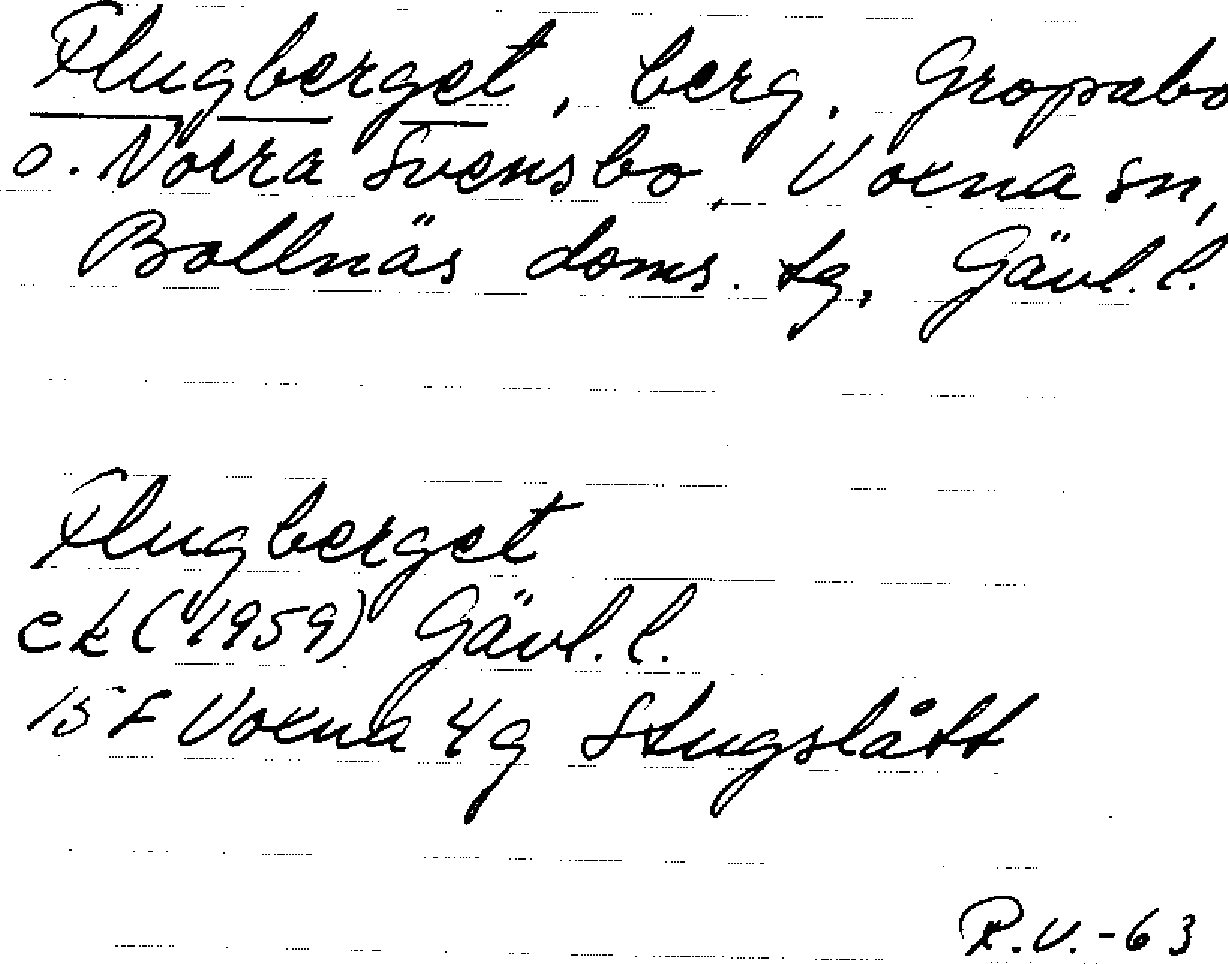 Flugberget, berg, Gropabo
o. Norra Svensbo, Voxna sn,
Bollnäs doms. tg, Gävl. l.
Flugberget
ek (1959) Gävl. l.
15 F Voxna 4g Stugslått
R.V.-63